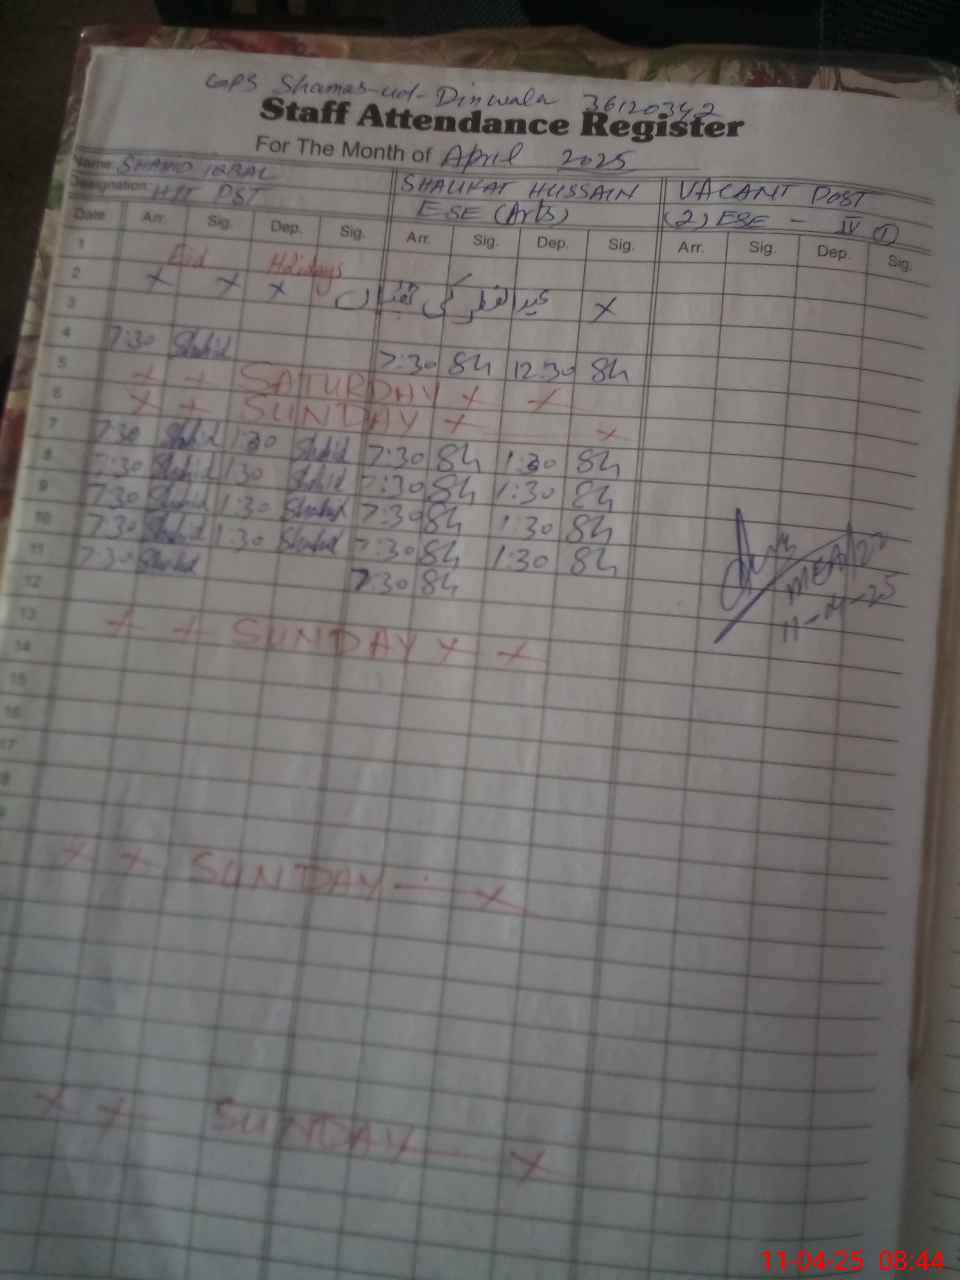 GPS Shamas-ud-Dinwala 36120342
Staff Attendance Register
For The Month of April 2025
Name: SHAHID IQBAL SHAUKAT HUSSAIN VACANT POST
Designation: PST ESE (Arts) (2) ESE - IV ①
Date Arr. Sig. Dep. Sig. Arr. Sig. Dep. Sig. Arr. Sig. Dep. Sig.
1 Eid Holidays
2 × × × عید الفطر کی ×
3
4 7:30 Shahid 7:30 Sh 12:30 Sh
5 × × SATURDAY × ×
6 × × SUNDAY × ×
7 7:30 Shahid 1:30 Shahid 7:30 Sh 1:30 Sh
8 7:30 Shahid 1:30 Shahid 7:30 Sh 1:30 Sh
9 7:30 Shahid 1:30 Shahid 7:30 Sh 1:30 Sh
10 7:30 Shahid 1:30 Shahid 7:30 Sh 1:30 Sh
11 7:30 Shahid 7:30 Sh
11-4-25
12
13 × × SUNDAY × ×
14
15
16
17
× × SUNDAY ×
× × SUNDAY ×
11-04-25 08:44